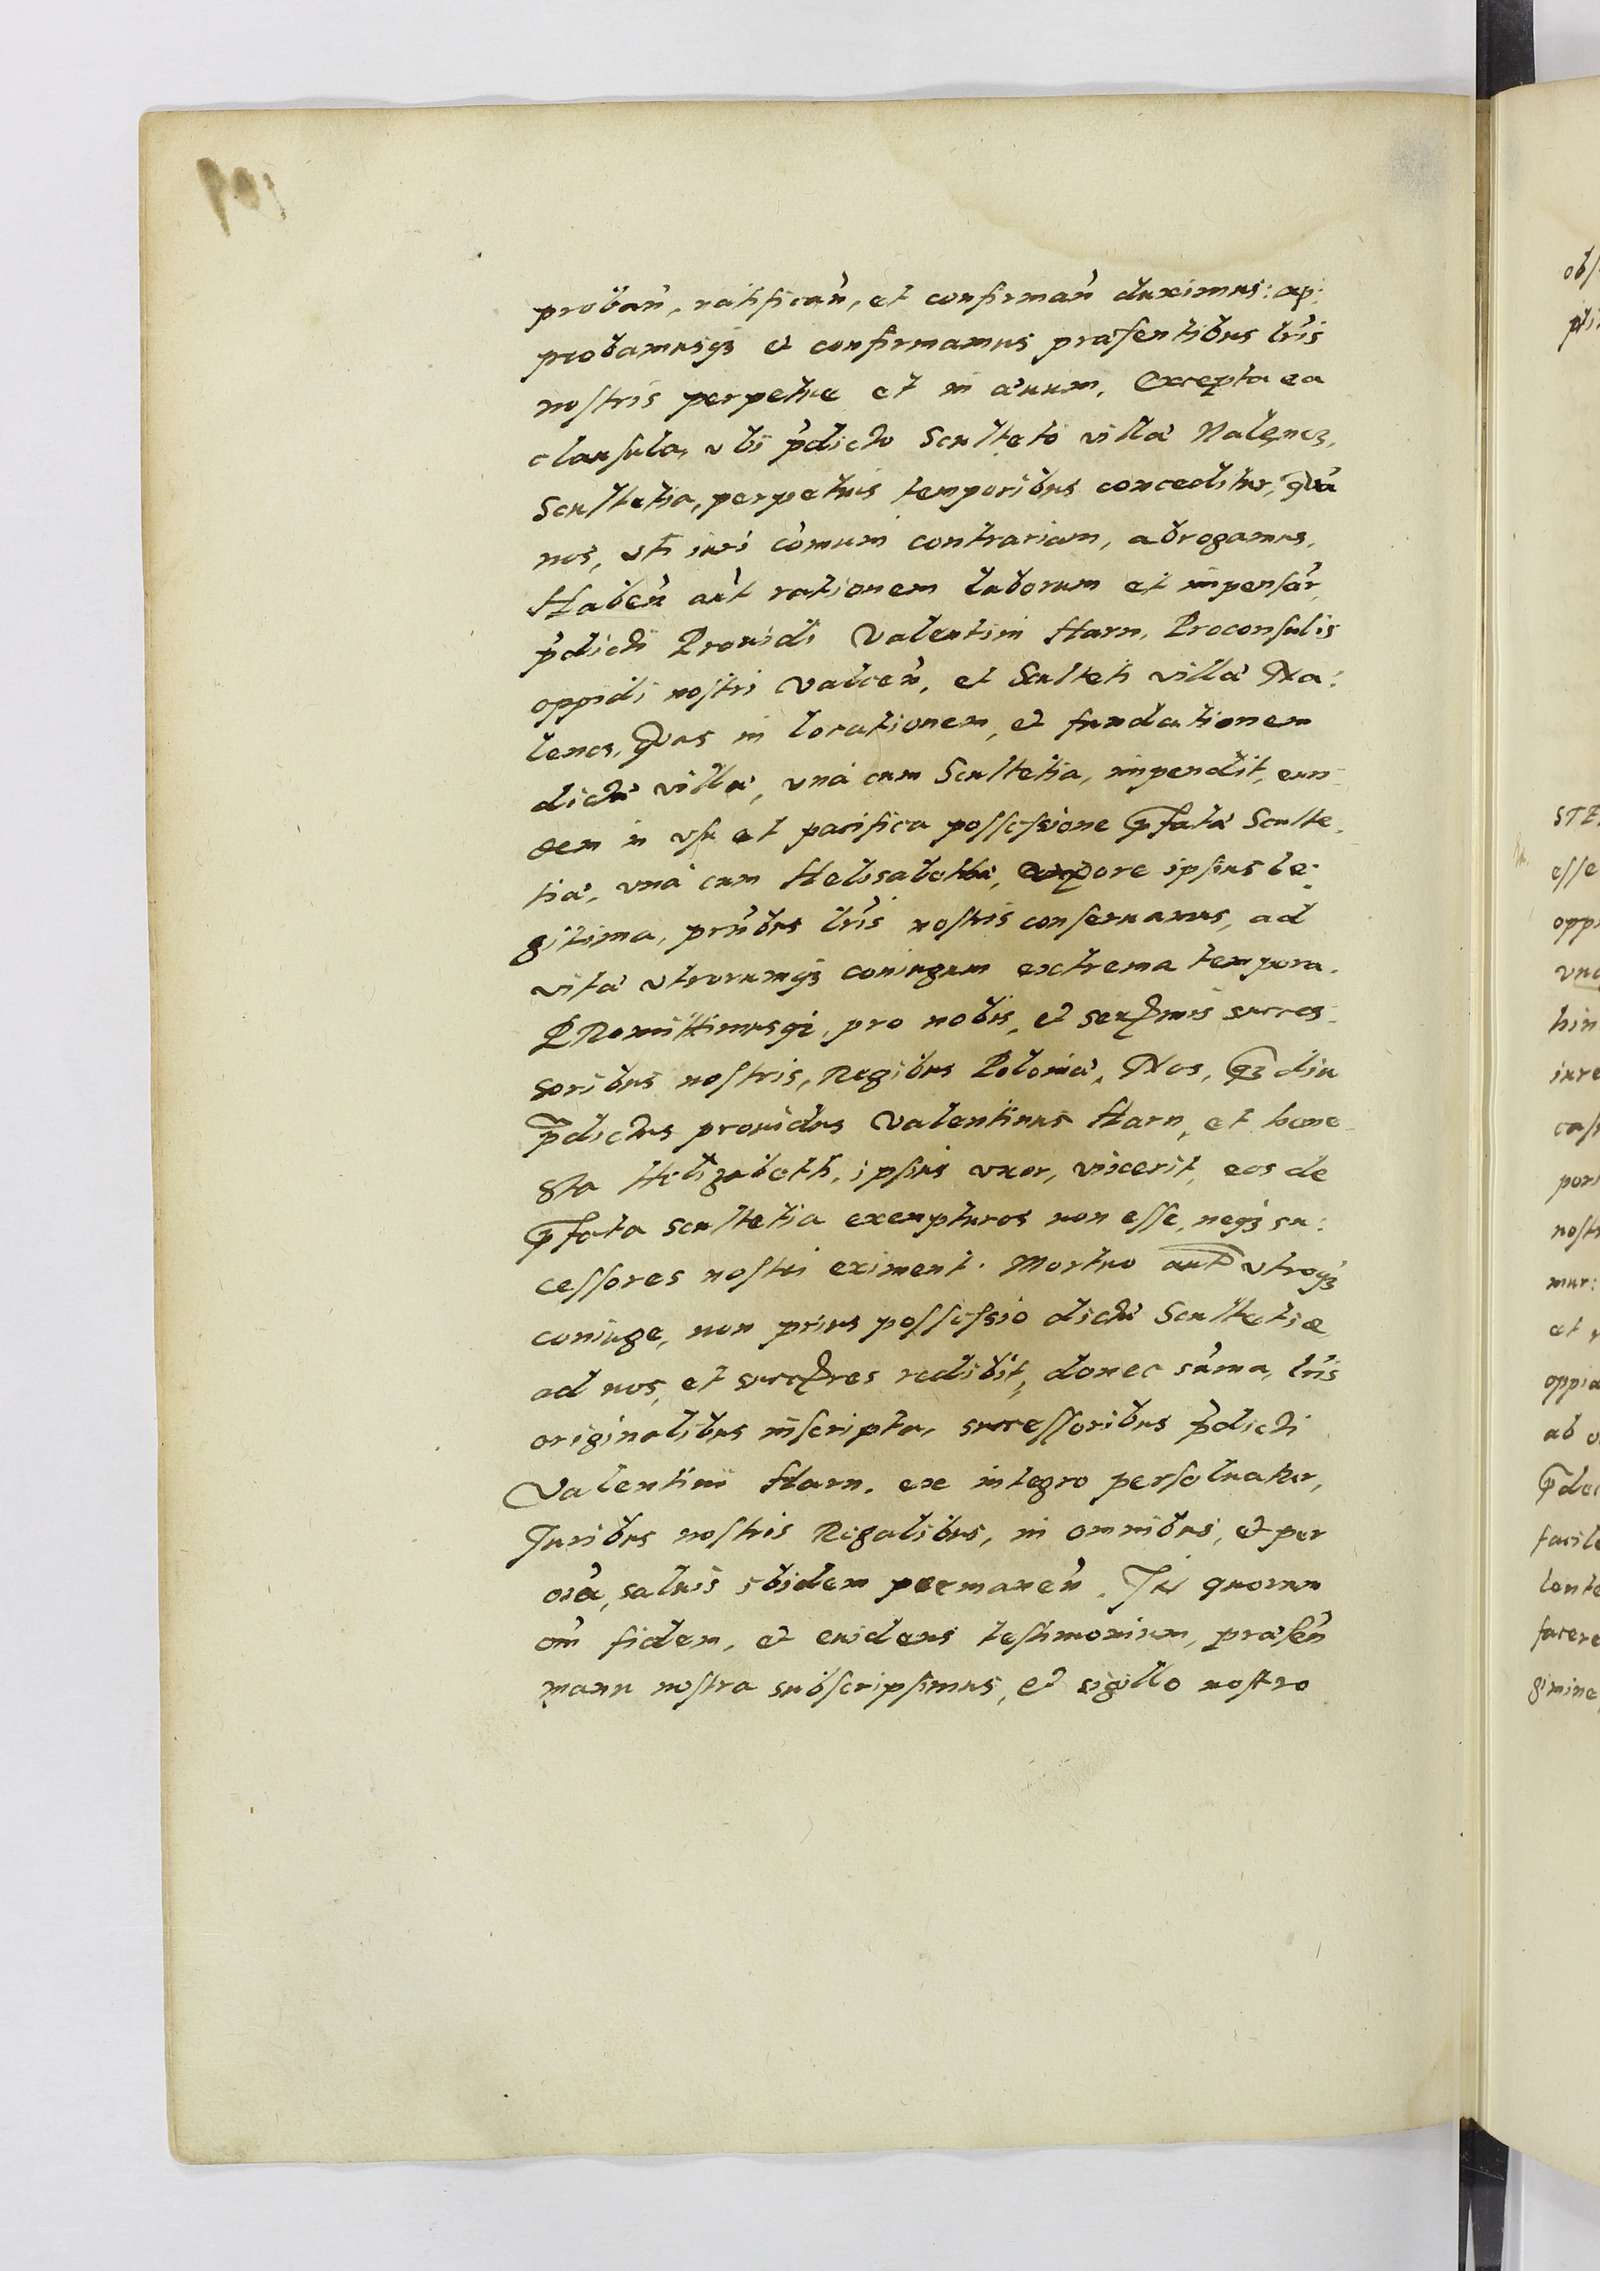 proban̄, ratifican̄, et confirman̄ duximus: ap:
probamusqȝ et confirmamus præsentibus lr̄is
nostris perpetue et in æuum. Excepta ea
clausula, vbi p̄dicto Sculteto villæ Nalencz,
Scultetia, perpetuis temporibus conceditur, quã
nos, vti iuri com̄uni contrariam, abrogamus.
Haben̄ aūt rationem laborum et impensar̄,
p̄dicti Prouidi Valentini Harn, Proconsulis
oppidi nostri Valcen̄, et Sculteti villæ Na:
lencz, Quas in locationem, et fundationem
dictæ villæ, vnà cum Scultetia, impendit, eun-
dem in vsu et pacifica possessione p̄fatæ Sculte-
tiæ, vnà cum Helisabetha, uxore ipsius le:
gitima, pn̄tibus lr̄is nostris conseruamus, ad
vitæ vtrorumqȝ coniugum extrema tempora.
PRomittimusqȝ, pro nobis, et Serēmis succes-
soribus nostris, Regibus Poloniæ, Nos, qȝ diu
p̄dictus prouidus Valentinus Harn, et hone-
sta Helizabeth, ipsius vxor, vixerit, eos de
p̄fata scultetia exempturos non esse, neqȝ su:
cessores nostri eximent. Mortuo aūt vtroqȝ
coniuge, non prius possessio dictæ Scultetiæ
ad nos, et succr̄es redibit, donec sūma, lr̄is
originalibus inscripta, successoribus p̄dicti
Valentini Harn, ex integro persoluatur,
Iuribus nostris Regalibus, in omnibus, et per
oīa, saluis ibidem permanen̄. IN quorum
om̄ fidem, et euidens testimonium, præsen̄
manu nostra subscripsimus, et sigillo nostro